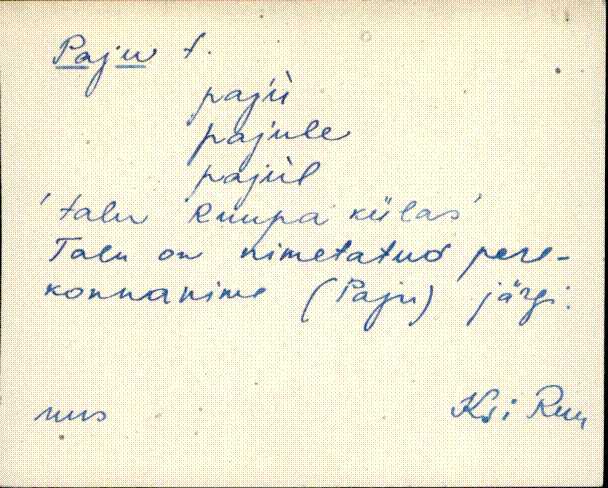 Paju t.
pajù
pajule
pajùl
'talu Ruupa külas'
Talu on nimetatud pere-
konnanime (Paju) järgi.
Ksi Ruu